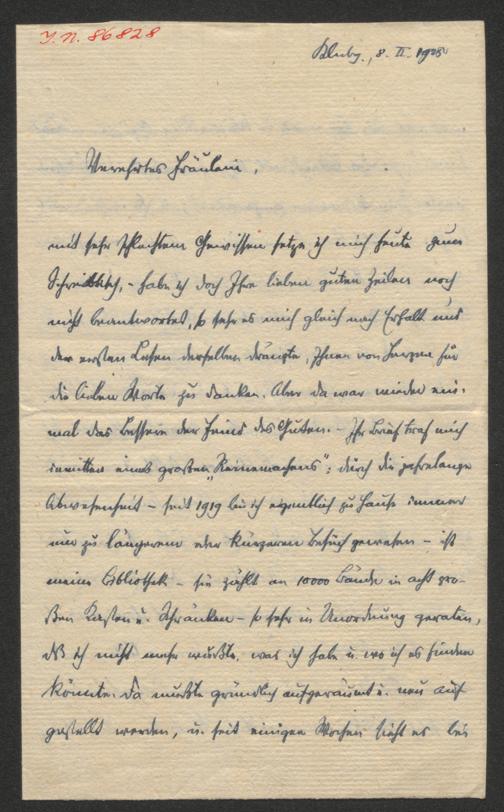 J. N. 86828
Klbg., 8. II. 1928
Verehrtes Fräulein,
mit sehr schlechtem Gewissen setze ich mich heute zum
Schreibtisch, - habe ich doch Ihre lieben guten Zeilen noch
nicht beantwortet, so sehr es mich gleich nach Erhalt und
dem ersten Lesen derselben drängte, Ihnen von Herzen für
die lieben Worte zu danken. Aber da war wieder ein-
mal das Bessere der Feind des Guten. - Ihr Brief traf mich
inmitten eines großen „Reinemachens“: durch die jahrelange
Abwesenheit - seit 1919 bin ich eigentlich zu Hause immer
nur zu längerem oder kürzerem Besuch gewesen - ist
meine Bibliothek - sie zählt an 10000 Bände in acht gro-
ßen Kasten u. Schränken - so sehr in Unordnung geraten,
daß ich nicht mehr wußte, was ich habe u. wo ich es finden
könnte. Da mußte gründlich aufgeräumt u. neu auf
gestellt werden, u. seit einigen Wochen sieht es bei